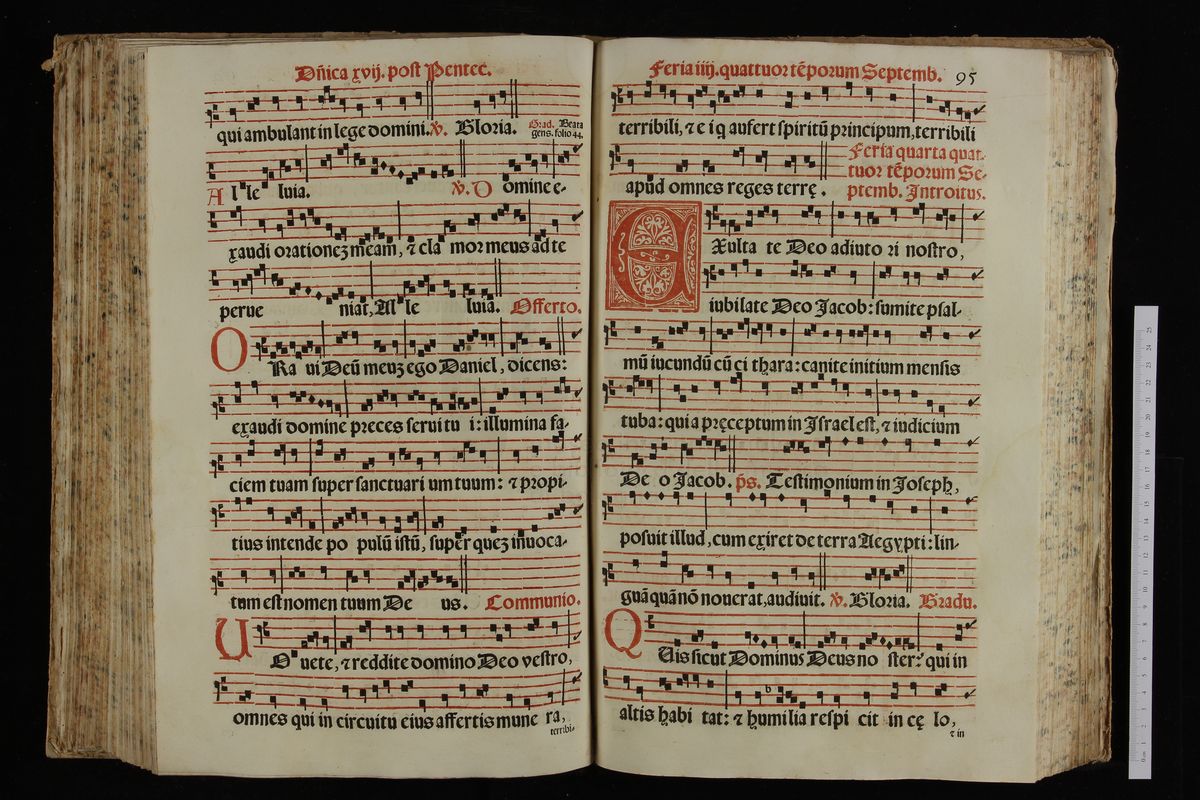 Dñica xvij. post Pentec.
qui ambulant in lege domini. ℣. Gloria. Grad. Beata
gens. folio 44.
Al le luia. ℣. Domine e-
xaudi orationeꝫ meam, ⁊ cla mor meus ad te
perue niat, Al le luia. Offerto.
ORa ui Deũ meuꝫ ego Daniel, dicens:
exaudi domine preces serui tu i: illumina fa-
ciem tuam super sanctuari um tuum: ⁊ propi-
tius intende po pulũ istũ, super queꝫ inuoca-
tum est nomen tuum De us. Communio.
UOuete, ⁊ reddite domino Deo vestro,
omnes qui in circuitu eius affertis mune ra,
terribi-
Feria iiij. quattuor tẽporum Septemb. 95
terribili, ⁊ e i q aufert spiritũ principum, terribili
apud omnes reges terrę.
Feria quarta quat-
tuor tẽporum Se-
ptemb. Introitus.
EXulta te Deo adiuto ri nostro,
iubilate Deo Jacob: sumite psal-
mũ iucundũ cũ ci thara: canite initium mensis
tuba: qui a pręceptum in Israel est, ⁊ iudicium
De o Jacob. p̃s. Testimonium in Joseph,
posuit illud, cum exiret de terra Aegypti: lin-
guã quã nõ nouerat, audiuit. ℣. Gloria. Gradu.
QUis sicut Dominus Deus no ster: qui in
altis habi tat: ⁊ humilia respi cit in cę lo,
⁊ in
25 24 23 22 21 20 19 18 17 16 15 14 13 12 11 10 9 8 7 6 5 4 3 2 1 0 cm